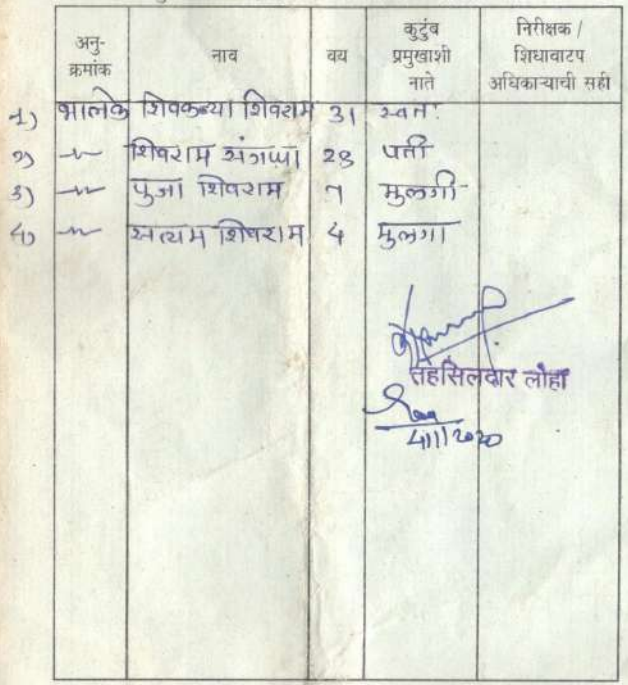 अनु-क्रमांक नाव वय कुटुंब प्रमुखाशी नाते निरीक्षक / शिधावाटप अधिकाऱ्याची सही
१) भालके शिवकन्या शिवराम 31 स्वतः
२) -"- शिवराम संग्राप्पा 28 पती
३) -"- पुजा शिवराम ७ मुलगी
४) -"- सत्यम शिवराम ५ मुलगा
तहसिलदार लोहा
4/1/2020